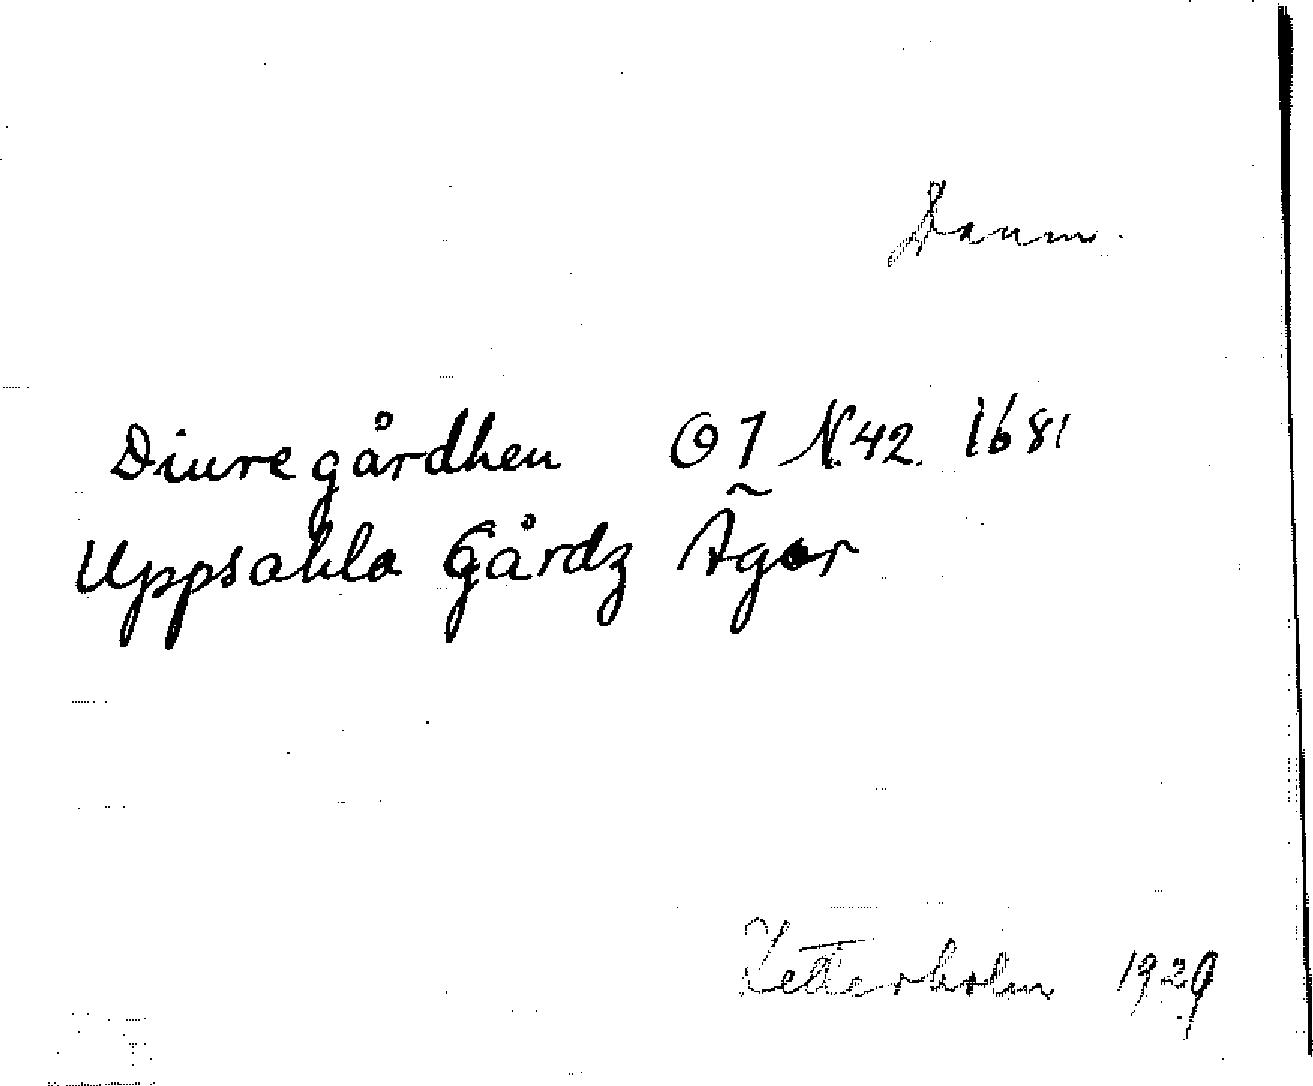 Danm.
Diuregårdhen O 7 N. 42. 1681
Uppsahla Gårdz Ägor
Zetterholm 1929